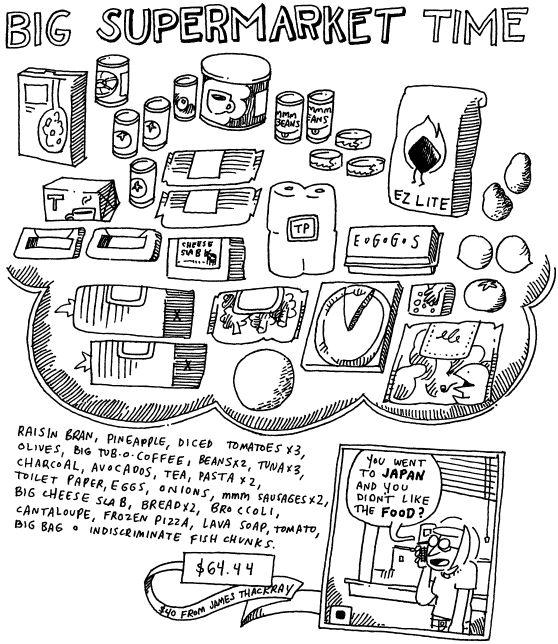 BIG SUPERMARKET TIME
MMM
BEANS
MMM
EANS
EZ LITE
T
TP
EGGGS
CHEESE
SLAB
X
X
ele
RAISIN BRAN, PINEAPPLE, DICED TOMATOES X3,
OLIVES, BIG TUB·O·COFFEE, BEANSX2, TUNAX3,
CHARCOAL, AVOCADOS, TEA, PASTA X2,
TOILET PAPER, EGGS, ONIONS, MMM SAUSAGES X2,
BIG CHEESE SLAB, BREADX2, BROCCOLI,
CANTALOUPE, FROZEN PIZZA, LAVA SOAP, TOMATO,
BIG BAG O INDISCRIMINATE FISH CHUNKS.
$64.44
$40 FROM JAMES THACKRAY
YOU WENT
TO JAPAN
AND YOU
DIDN'T LIKE
THE FOOD?